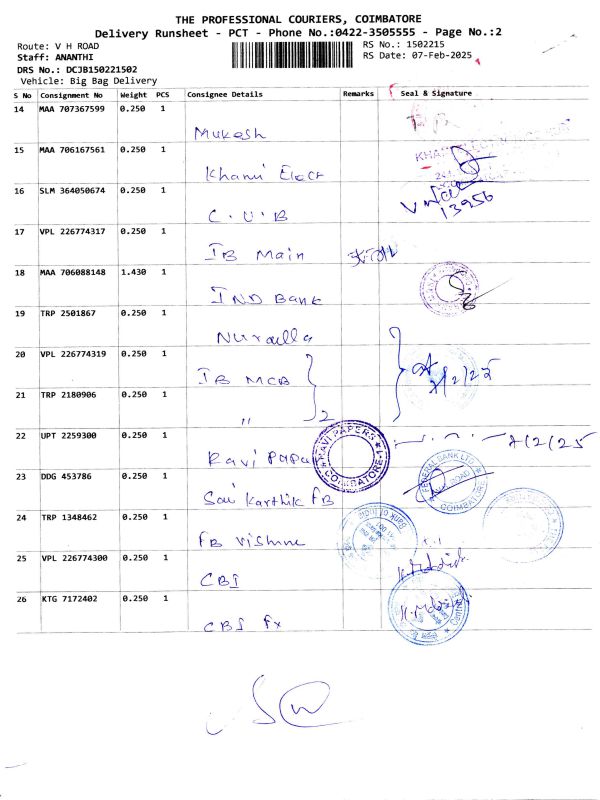 THE PROFESSIONAL COURIERS, COIMBATORE
Delivery Runsheet - PCT - Phone No.:0422-3505555 - Page No.:2
Route: V H ROAD
RS No.: 1502215
Staff: ANANTHI
RS Date: 07-Feb-2025
DRS No.: DCJB150221502
Vehicle: Big Bag Delivery
S No Consignment No Weight PCS Consignee Details Remarks Seal & Signature
14 MAA 707367599 0.250 1
Mukesh
15 MAA 706167561 0.250 1
Khami Elect
16 SLM 364050674 0.250 1
13956
C.U.B
17 VPL 226774317 0.250 1
IB Main
18 MAA 706088148 1.430 1
IND Bank
19 TRP 2501867 0.250 1
20 VPL 226774319 0.250 1
IB MCB
7/2/25
21 TRP 2180906 0.250 1
" 2
22 UPT 2259300 0.250 1
RAVI PAPERS COIMBATORE-1
7/2/25
Ravi Papar
23 DDG 453786 0.250 1
FEDERAL BANK LTD COIMBATORE
Sai Karthik FB
24 TRP 1348462 0.250 1
FB Vishnu
25 VPL 226774300 0.250 1
CBI
26 KTG 7172402 0.250 1
CBI Fx